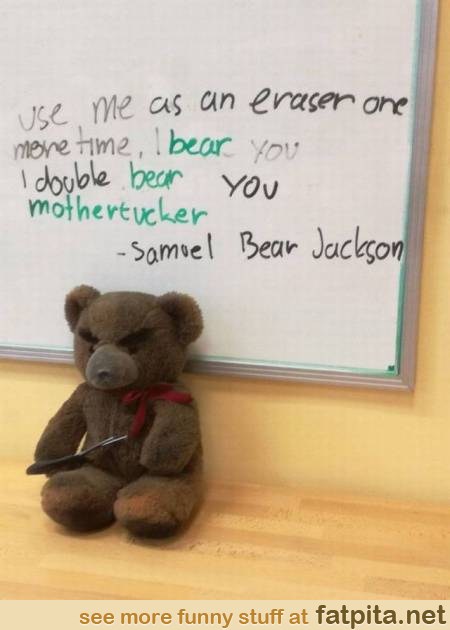 use me as an eraser one
more time, I bear you
I double bear you
mothertucker
-Samuel Bear Jackson
see more funny stuff at fatpita.net